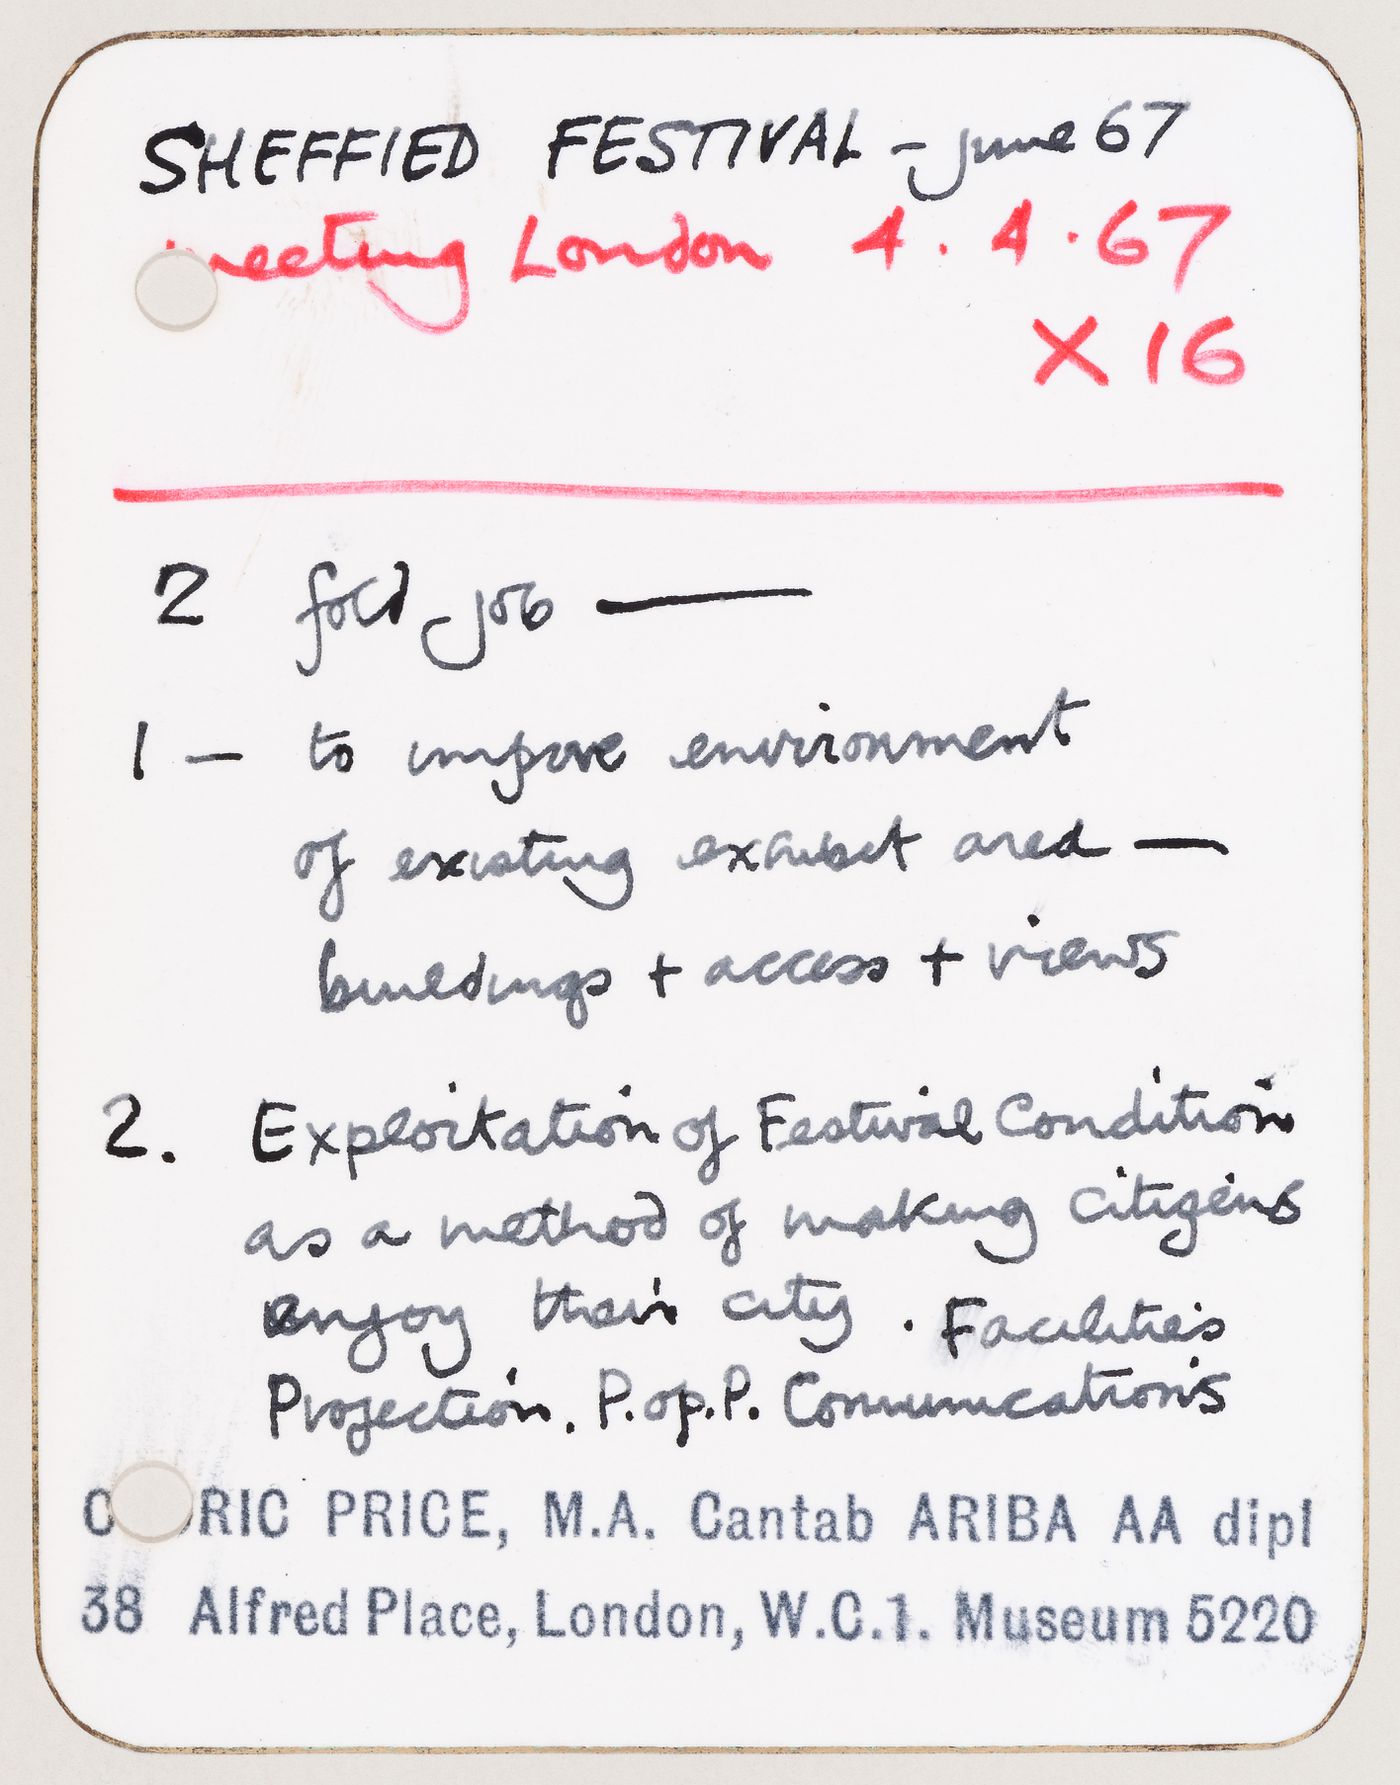 SHEFFIED FESTIVAL - june 67
meeting London 4.4.67
X 16
2 fold job —
1 — to improve environment
of existing exhibit area —
buildings + access + views
2. Exploitation of Festival Condition
as a method of making citizens
enjoy their city. Facilities
Projection. P.op.P. Communications
C RIC PRICE, M.A. Cantab ARIBA AA dipl
38 Alfred Place, London, W.C.1. Museum 5220